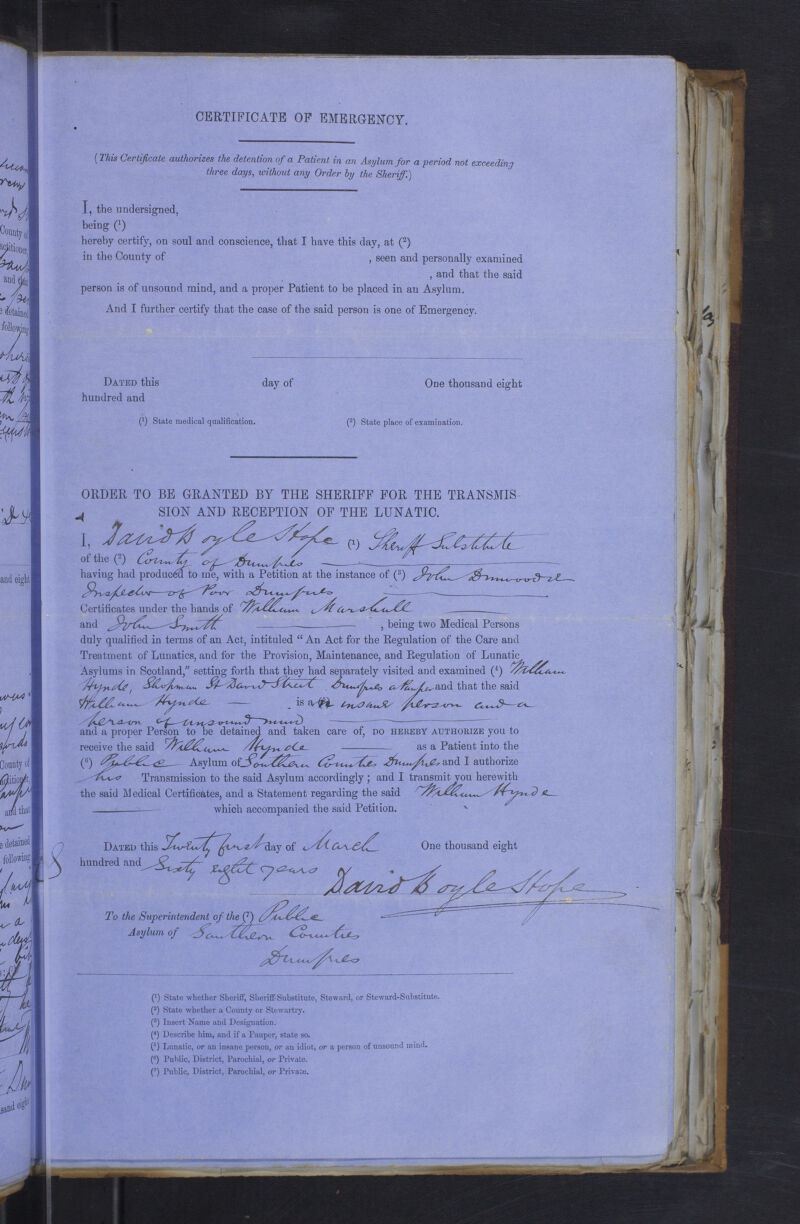 CERTIFICATE OF EMERGENCY.
(This Certificate authorizes the detention of a Patient in an Asylum for a period not exceeding
three days, without any Order by the Sheriff.)
I, the undersigned,
being (¹)
hereby certify, on soul and conscience, that I have this day, at (²)
in the County of , seen and personally examined
, and that the said
person is of unsound mind, and a proper Patient to be placed in an Asylum.
And I further certify that the case of the said person is one of Emergency.
DATED this day of One thousand eight
hundred and
(¹) State medical qualification. (²) State place of examination.
ORDER TO BE GRANTED BY THE SHERIFF FOR THE TRANSMIS-
SION AND RECEPTION OF THE LUNATIC.
I, David Boyle Hope (¹) Sheriff Substitute
of the (²) County of Dumfries
having had produced to me, with a Petition at the instance of (³) John Dinwoodie
Inspector of Poor Dumfries
Certificates under the hands of William Marshall
and John Smith , being two Medical Persons
duly qualified in terms of an Act, intituled "An Act for the Regulation of the Care and
Treatment of Lunatics, and for the Provision, Maintenance, and Regulation of Lunatic
Asylums in Scotland," setting forth that they had separately visited and examined (⁴) William
Hynde, Shopman St David Street Dumfries a Pauper and that the said
William Hynde is an insane person and a
person of unsound mind
and a proper Person to be detained and taken care of, DO HEREBY AUTHORIZE you to
receive the said William Hynde as a Patient into the
(⁶) Public Asylum of Southern Counties Dumfries and I authorize
his Transmission to the said Asylum accordingly; and I transmit you herewith
the said Medical Certificates, and a Statement regarding the said William Hynde
which accompanied the said Petition.
DATED this Twenty first day of March One thousand eight
hundred and Sixty eight years
David Boyle Hope
To the Superintendent of the (⁷) Public
Asylum of Southern Counties
Dumfries
(¹) State whether Sheriff, Sheriff-Substitute, Steward, or Steward-Substitute.
(²) State whether a County or Stewartry.
(³) Insert Name and Designation.
(⁴) Describe him, and if a Pauper, state so.
(⁵) Lunatic, or an insane person, or an idiot, or a person of unsound mind.
(⁶) Public, District, Parochial, or Private.
(⁷) Public, District, Parochial, or Private.